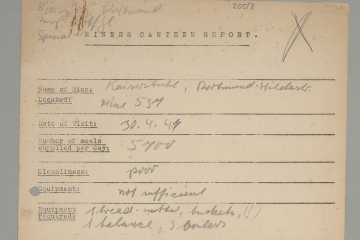 Dortmund 2053
Special
MINERS CANTEEN REPORT.
Name of Mine: Kaiserstuhl, Dortmund-
Located: Mine 537
Date of Visit: 30.4.47
Number of meals
supplied per day: 5400
Cleanliness: poor
Equipment: not sufficient
Equipment 1 bread-cutter, buckets, !!!
required: 1 balance, 3 boilers